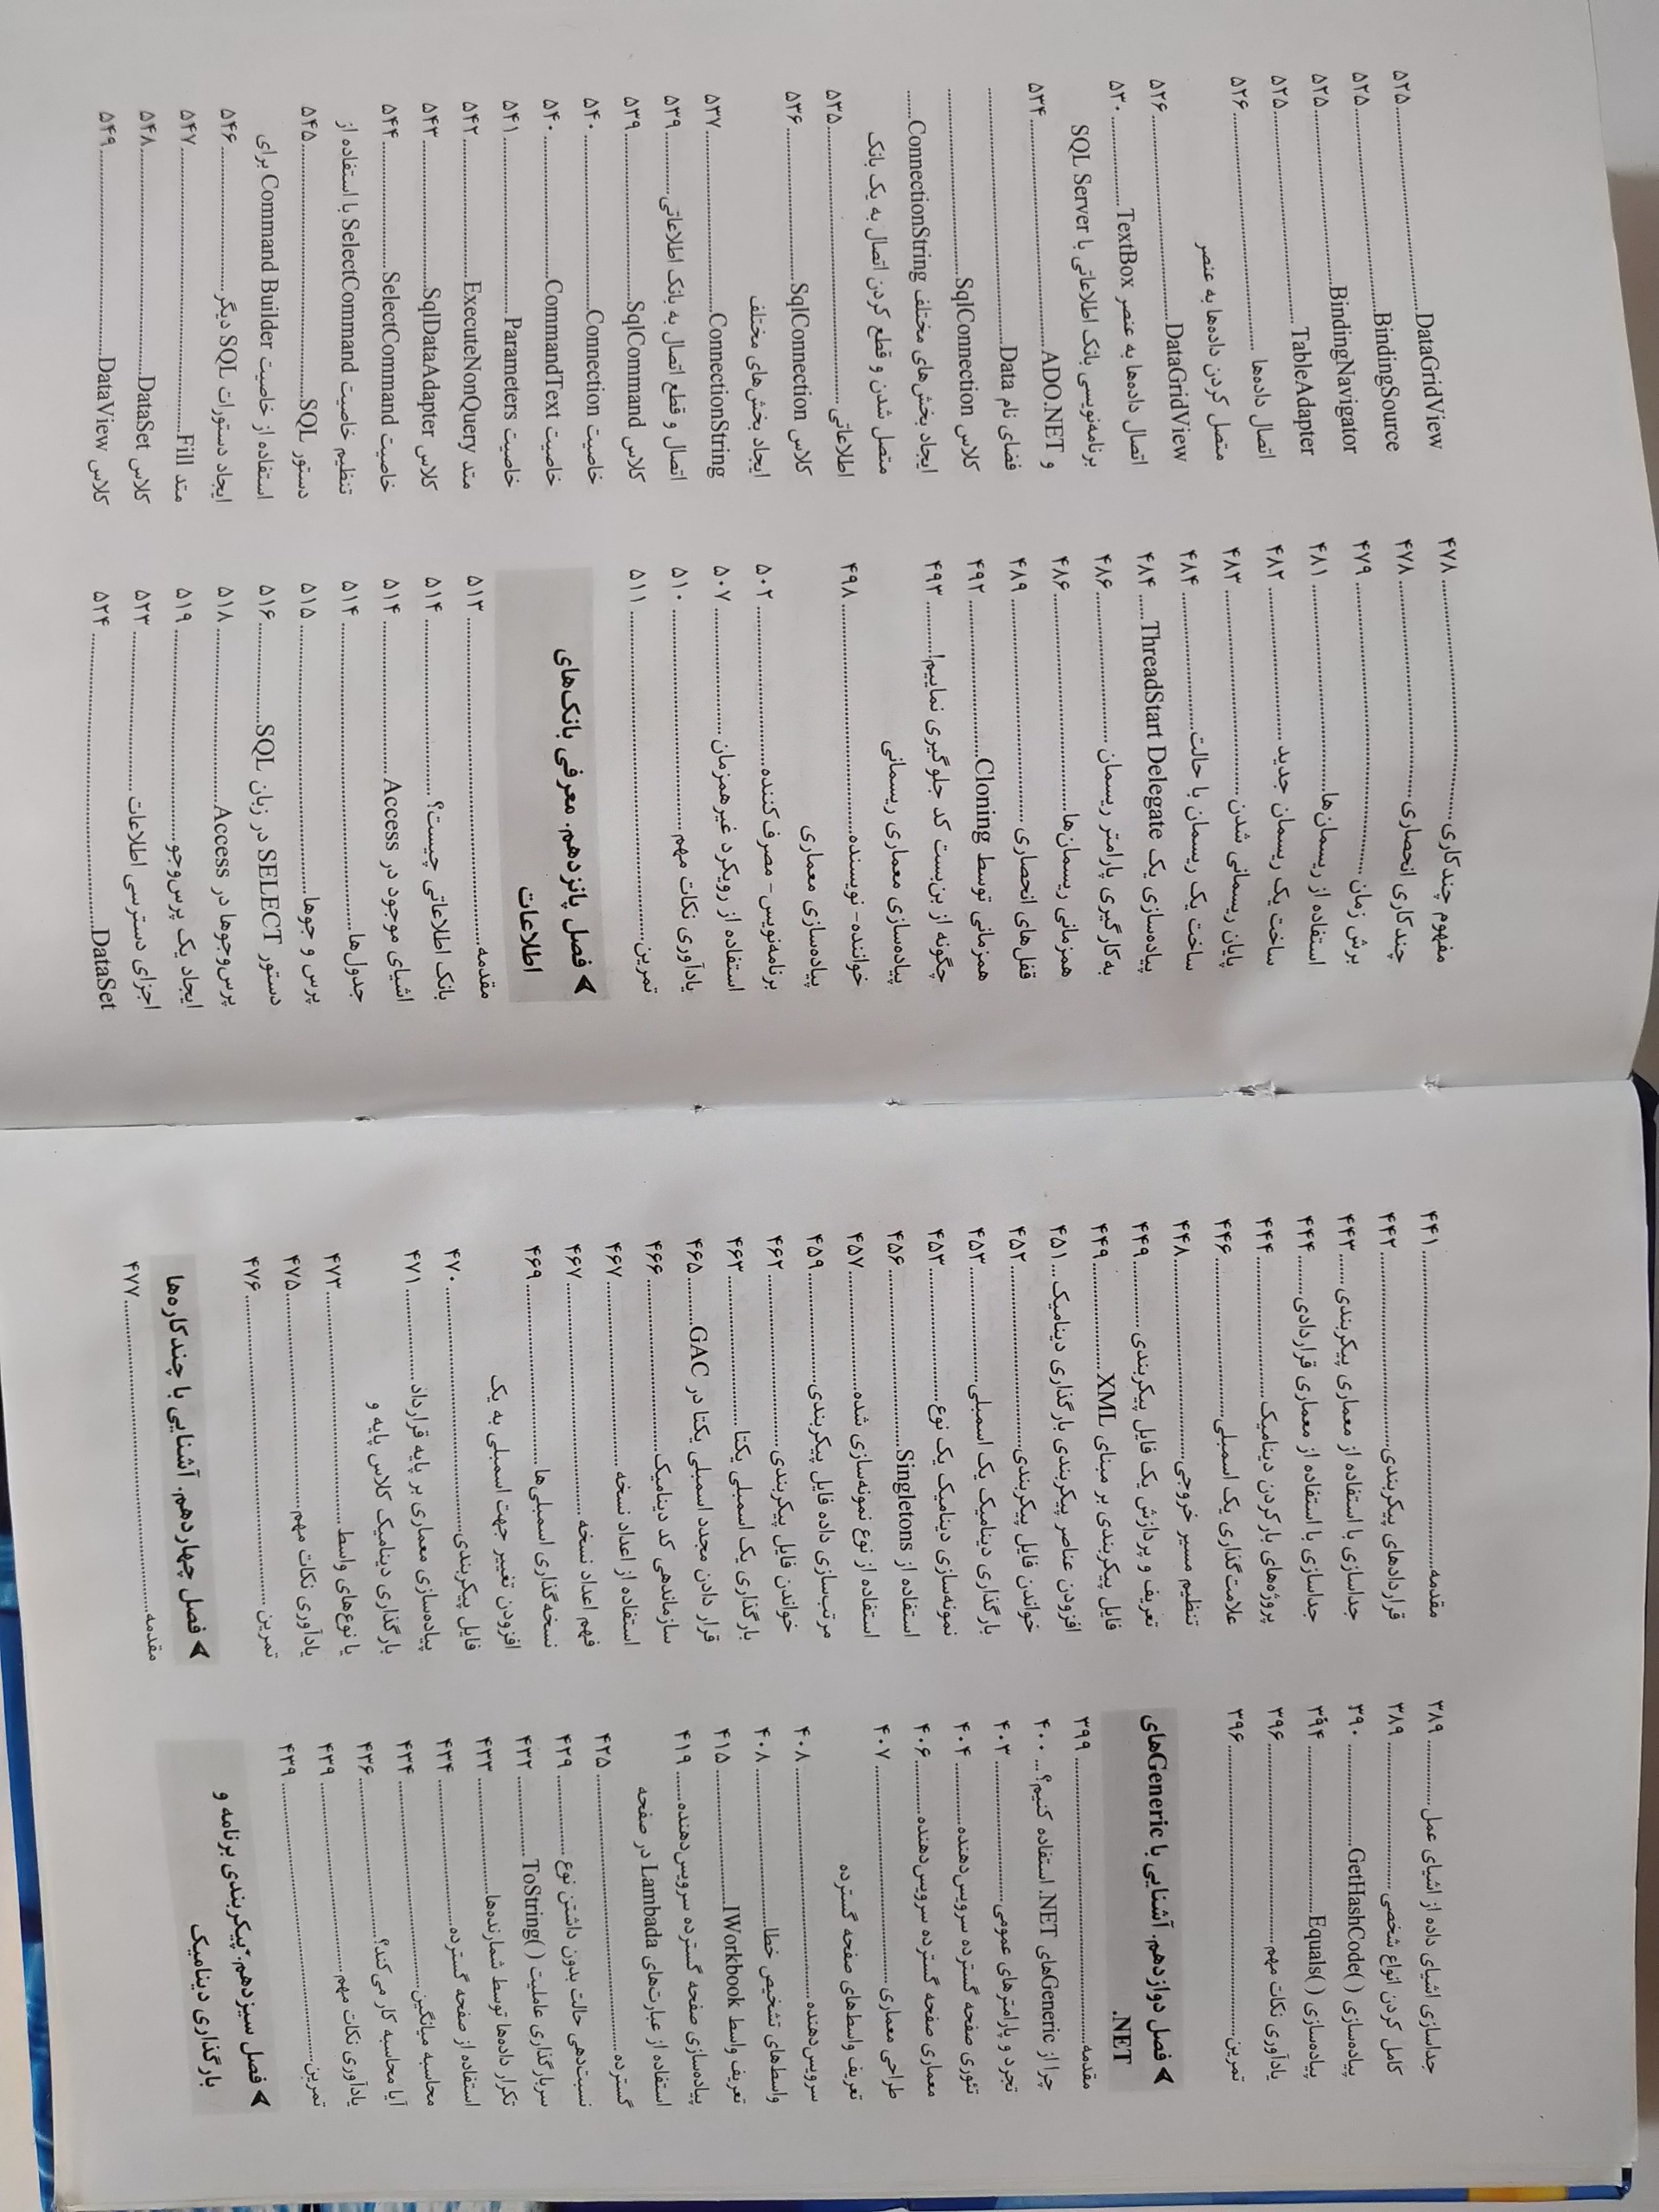 جداسازی اشیای داده از اشیای عمل ............ ۳۸۹
کامل کردن انواع شخصی ............ ۳۸۹
پیاده‌سازی GetHashCode( ) ............ ۳۹۰
پیاده‌سازی Equals( ) ............ ۳۹۴
یادآوری نکات مهم ............ ۳۹۶
تمرین ............ ۳۹۶
فصل دوازدهم. آشنایی با Genericهای
.NET
مقدمه ............ ۳۹۹
چرا از Genericهای .NET استفاده کنیم؟ .... ۴۰۰
تجرد و پارامترهای عمومی ............ ۴۰۳
تئوری صفحه گسترده سرویس‌دهنده ............ ۴۰۴
معماری صفحه گسترده سرویس‌دهنده ............ ۴۰۶
طراحی معماری ............ ۴۰۷
تعریف واسط‌های صفحه گسترده
سرویس‌دهنده ............ ۴۰۸
واسط‌های تشخیص خطا ............ ۴۰۸
تعریف واسط IWorkbook ............ ۴۱۵
پیاده‌سازی صفحه گسترده سرویس‌دهنده ..... ۴۱۹
استفاده از عبارت‌های Lambada در صفحه
گسترده ............ ۴۲۵
نسبت‌دهی حالت بدون داشتن نوع ............ ۴۲۹
سربارگذاری عاملیت ToString( ) ............ ۴۳۲
تکرار داده‌ها توسط شمارنده‌ها ............ ۴۳۳
استفاده از صفحه گسترده ............ ۴۳۴
محاسبه میانگین ............ ۴۳۴
آیا محاسبه کار می‌کند؟ ............ ۴۳۶
یادآوری نکات مهم ............ ۴۳۹
تمرین ............ ۴۳۹
فصل سیزدهم. پیکربندی برنامه و
بارگذاری دینامیک
مقدمه ............ ۴۴۱
قراردادهای پیکربندی ............ ۴۴۲
جداسازی با استفاده از معماری پیکربندی ...... ۴۴۳
جداسازی با استفاده از معماری قراردادی ....... ۴۴۴
پروژه‌های بارکردن دینامیک ............ ۴۴۴
علامت‌گذاری یک اسمبلی ............ ۴۴۶
تنظیم مسیر خروجی ............ ۴۴۸
تعریف و پردازش یک فایل پیکربندی ............ ۴۴۹
فایل پیکربندی بر مبنای XML ............ ۴۴۹
افزودن عناصر پیکربندی بارگذاری دینامیک .... ۴۵۱
خواندن فایل پیکربندی ............ ۴۵۲
بارگذاری دینامیک یک اسمبلی ............ ۴۵۳
نمونه‌سازی دینامیک یک نوع ............ ۴۵۳
استفاده از Singletons ............ ۴۵۶
استفاده از نوع نمونه‌سازی شده ............ ۴۵۷
مرتب‌سازی داده فایل پیکربندی ............ ۴۵۹
خواندن فایل پیکربندی ............ ۴۶۲
بارگذاری یک اسمبلی یکتا ............ ۴۶۳
قرار دادن مجدد اسمبلی یکتا در GAC ....... ۴۶۵
سازماندهی کد دینامیک ............ ۴۶۶
استفاده از اعداد نسخه ............ ۴۶۷
فهم اعداد نسخه ............ ۴۶۷
نسخه‌گذاری اسمبلی‌ها ............ ۴۶۹
افزودن تغییر جهت اسمبلی به یک
فایل پیکربندی ............ ۴۷۰
پیاده‌سازی معماری بر پایه قرارداد ............ ۴۷۱
بارگذاری دینامیک کلاس پایه و
یا نوع‌های واسط ............ ۴۷۳
یادآوری نکات مهم ............ ۴۷۵
تمرین ............ ۴۷۶
فصل چهاردهم. آشنایی با چندکاره‌ها
مقدمه ............ ۴۷۷
مفهوم چندکاری ............ ۴۷۸
چندکاری انحصاری ............ ۴۷۸
برش زمان ............ ۴۷۹
استفاده از ریسمان‌ها ............ ۴۸۱
ساخت یک ریسمان جدید ............ ۴۸۲
پایان ریسمانی شدن ............ ۴۸۳
ساخت یک ریسمان با حالت ............ ۴۸۴
پیاده‌سازی یک ThreadStart Delegate ..... ۴۸۴
به‌کارگیری پارامتر ریسمان ............ ۴۸۶
همزمانی ریسمان‌ها ............ ۴۸۶
قفل‌های انحصاری ............ ۴۸۹
همزمانی توسط Cloning ............ ۴۹۲
چگونه از بن‌بست کد جلوگیری نماییم! ........ ۴۹۳
پیاده‌سازی معماری ریسمانی
خواننده- نویسنده ............ ۴۹۸
پیاده‌سازی معماری
برنامه‌نویس- مصرف‌کننده ............ ۵۰۲
استفاده از رویکرد غیرهمزمان ............ ۵۰۷
یادآوری نکات مهم ............ ۵۱۰
تمرین ............ ۵۱۱
فصل پانزدهم. معرفی بانک‌های
اطلاعات
مقدمه ............ ۵۱۳
بانک اطلاعاتی چیست؟ ............ ۵۱۴
اشیای موجود در Access ............ ۵۱۴
جدول‌ها ............ ۵۱۴
پرس و جوها ............ ۵۱۵
دستور SELECT در زبان SQL ............ ۵۱۶
پرس‌وجوها در Access ............ ۵۱۸
ایجاد یک پرس‌وجو ............ ۵۱۹
اجزای دسترسی اطلاعات ............ ۵۲۳
DataSet ............ ۵۲۴
DataGridView ............ ۵۲۵
BindingSource ............ ۵۲۵
BindingNavigator ............ ۵۲۵
TableAdapter ............ ۵۲۵
اتصال داده‌ها ............ ۵۲۶
متصل کردن داده‌ها به عنصر
DataGridView ............ ۵۲۶
اتصال داده‌ها به عنصر TextBox ............ ۵۳۰
برنامه‌نویسی بانک اطلاعاتی با SQL Server
و ADO.NET ............ ۵۳۴
فضای نام Data ............
کلاس SqlConnection ............
ایجاد بخش‌های مختلف ConnectionString ......
متصل شدن و قطع کردن اتصال به یک بانک
اطلاعاتی ............ ۵۳۵
کلاس SqlConnection ............ ۵۳۶
ایجاد بخش‌های مختلف
ConnectionString ............ ۵۳۷
اتصال و قطع اتصال به بانک اطلاعاتی ............ ۵۳۹
کلاس SqlCommand ............ ۵۳۹
خاصیت Connection ............ ۵۴۰
خاصیت CommandText ............ ۵۴۰
خاصیت Parameters ............ ۵۴۱
متد ExecuteNonQuery ............ ۵۴۲
کلاس SqlDataAdapter ............ ۵۴۳
خاصیت SelectCommand ............ ۵۴۴
تنظیم خاصیت SelectCommand با استفاده از
دستور SQL ............ ۵۴۵
استفاده از خاصیت Command Builder برای
ایجاد دستورات SQL دیگر ............ ۵۴۶
متد Fill ............ ۵۴۷
کلاس DataSet ............ ۵۴۸
کلاس DataView ............ ۵۴۹